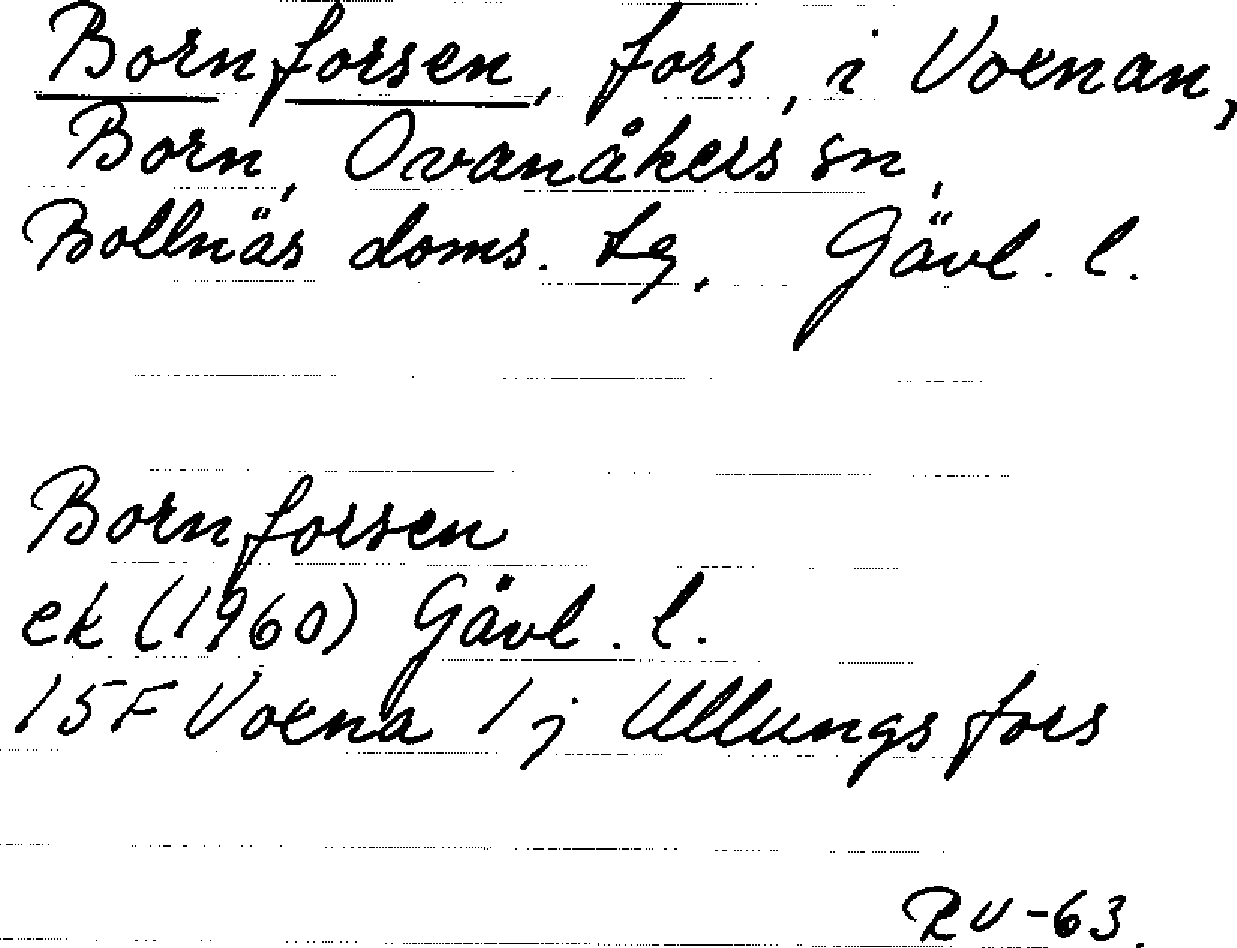 Bornforsen, fors, i Voxnan,
Born, Ovanåkers sn,
Bollnäs doms. tg, Gävl. l.
Bornforsen
ek (1960) Gävl. l.
15F Voxna 1j Ullungsfors
RV-63.